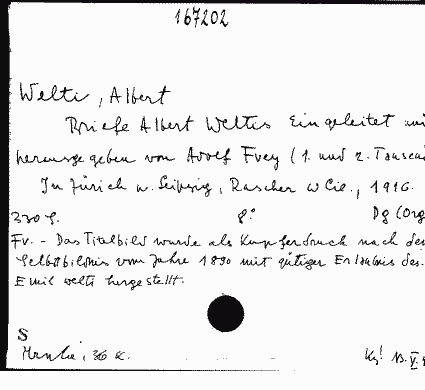 167202
Welti, Albert
Briefe Albert Weltis Eingeleitet und
herausgegeben von Adolf Frey (1. und 2. Tausend
In Zürich u. Leipzig, Rascher u Cie., 1916.
230 S. 8° Dg (Org
Fr. - Das Titelbild wurde als Kupferdruck nach dem
Selbstbildnis vom Jahre 1890 mit gütiger Erlaubnis des
Emil Welti hergestellt.
S
36 K.